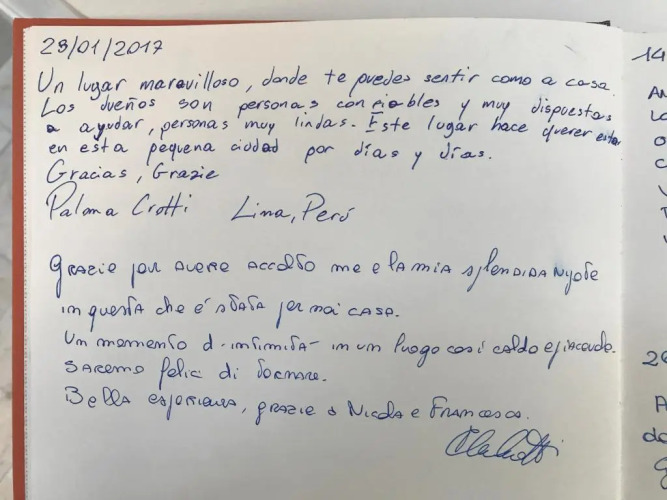 23/01/2017
Un lugar maravilloso, donde te puedes sentir como a casa.
Los dueños son personas confiables y muy dispuestas
a ayudar, personas muy lindas. Este lugar hace querer estar
en esta pequena ciudad por días y días.
Gracias, Grazie
Paloma Crotti Lima, Perú
Grazie per avere accolto me e la mia splendida nipote
in questa che é stata per noi casa.
Un momento d'intimità in un luogo così caldo e piacevole.
Saremo felici di tornare.
Bella esperienza, grazie a Nicola e Francesca.
14
2